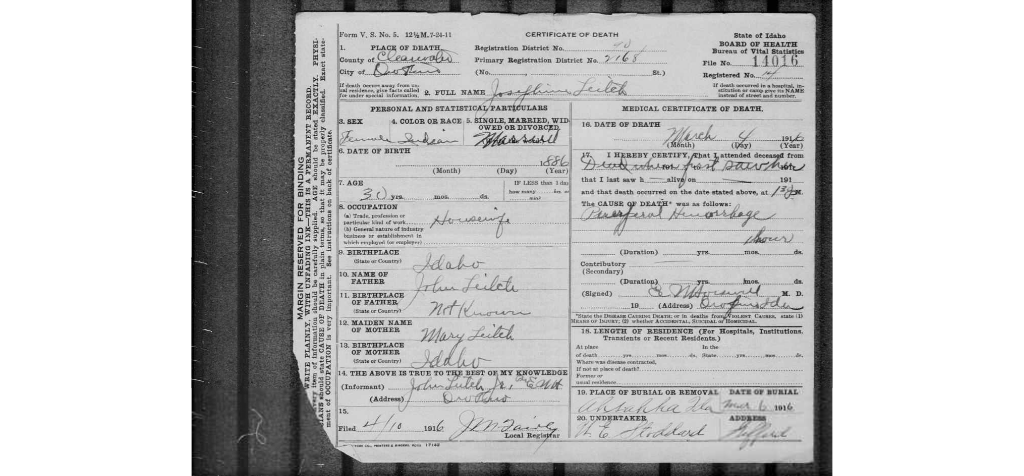 Form V. S. No. 5. 12½M. 7-24-11
CERTIFICATE OF DEATH
State of Idaho
BOARD OF HEALTH
Bureau of Vital Statistics
File No. 14016
Registered No.
If death occurred in a hospital, institution or camp give its NAME instead of street and number.
1. PLACE OF DEATH
County of Clearwater
City of Orofino
If death occurs away from usual residence, give facts called for under special information.
Registration District No.
Primary Registration District No. 2168
(No. St.)
2. FULL NAME Josephine Leitch
PERSONAL AND STATISTICAL PARTICULARS
3. SEX
Female
4. COLOR OR RACE
Indian
5. SINGLE, MARRIED, WIDOWED OR DIVORCED
Married
6. DATE OF BIRTH
1886
(Month) (Day) (Year)
7. AGE
30 yrs. mos. ds.
IF LESS than 1 day
how many hrs. or min?
8. OCCUPATION
(a) Trade, profession or particular kind of work
(b) General nature of industry business or establishment in which employed (or employer)
Housewife
9. BIRTHPLACE
(State or Country)
Idaho
10. NAME OF FATHER
John Leitch
11. BIRTHPLACE OF FATHER
(State or Country)
Not Known
12. MAIDEN NAME OF MOTHER
Mary Leitch
13. BIRTHPLACE OF MOTHER
(State or Country)
Idaho
14. THE ABOVE IS TRUE TO THE BEST OF MY KNOWLEDGE
(Informant) John Leitch Jr.
(Address) Orofino
15.
Filed 4/10 1916
Local Registrar
MEDICAL CERTIFICATE OF DEATH.
16. DATE OF DEATH
March 4 1916
(Month) (Day) (Year)
17. I HEREBY CERTIFY, That I attended deceased from
Dead when first saw her
that I last saw h alive on 191
and that death occurred on the date stated above, at
The CAUSE OF DEATH* was as follows:
Puerperal Hemorrhage
hour
(Duration) yrs. mos. ds.
Contributory
(Secondary)
(Duration) yrs. mos. ds.
(Signed) M. D.
19 (Address) Orofino Ida
*State the DISEASE CAUSING DEATH; or in deaths from VIOLENT CAUSES, state (1) MEANS OF INJURY; (2) whether ACCIDENTAL, SUICIDAL or HOMICIDAL.
18. LENGTH OF RESIDENCE (For Hospitals, Institutions, Transients or Recent Residents.)
At place of death yrs. mos. ds. In the State yrs. mos. ds.
Where was disease contracted, if not at place of death?
Former or usual residence
19. PLACE OF BURIAL OR REMOVAL
Ahsahka Ida
DATE OF BURIAL
Mar 6 1916
20. UNDERTAKER
Stoddard
ADDRESS
Gifford
MARGIN RESERVED FOR BINDING
WRITE PLAINLY, WITH UNFADING INK—THIS IS A PERMANENT RECORD.
every item of information should be carefully supplied. AGE should be stated EXACTLY. PHYSICIANS should state CAUSE OF DEATH in plain terms, so that it may be properly classified. Exact statement of OCCUPATION is very important. See instructions on back of certificate.